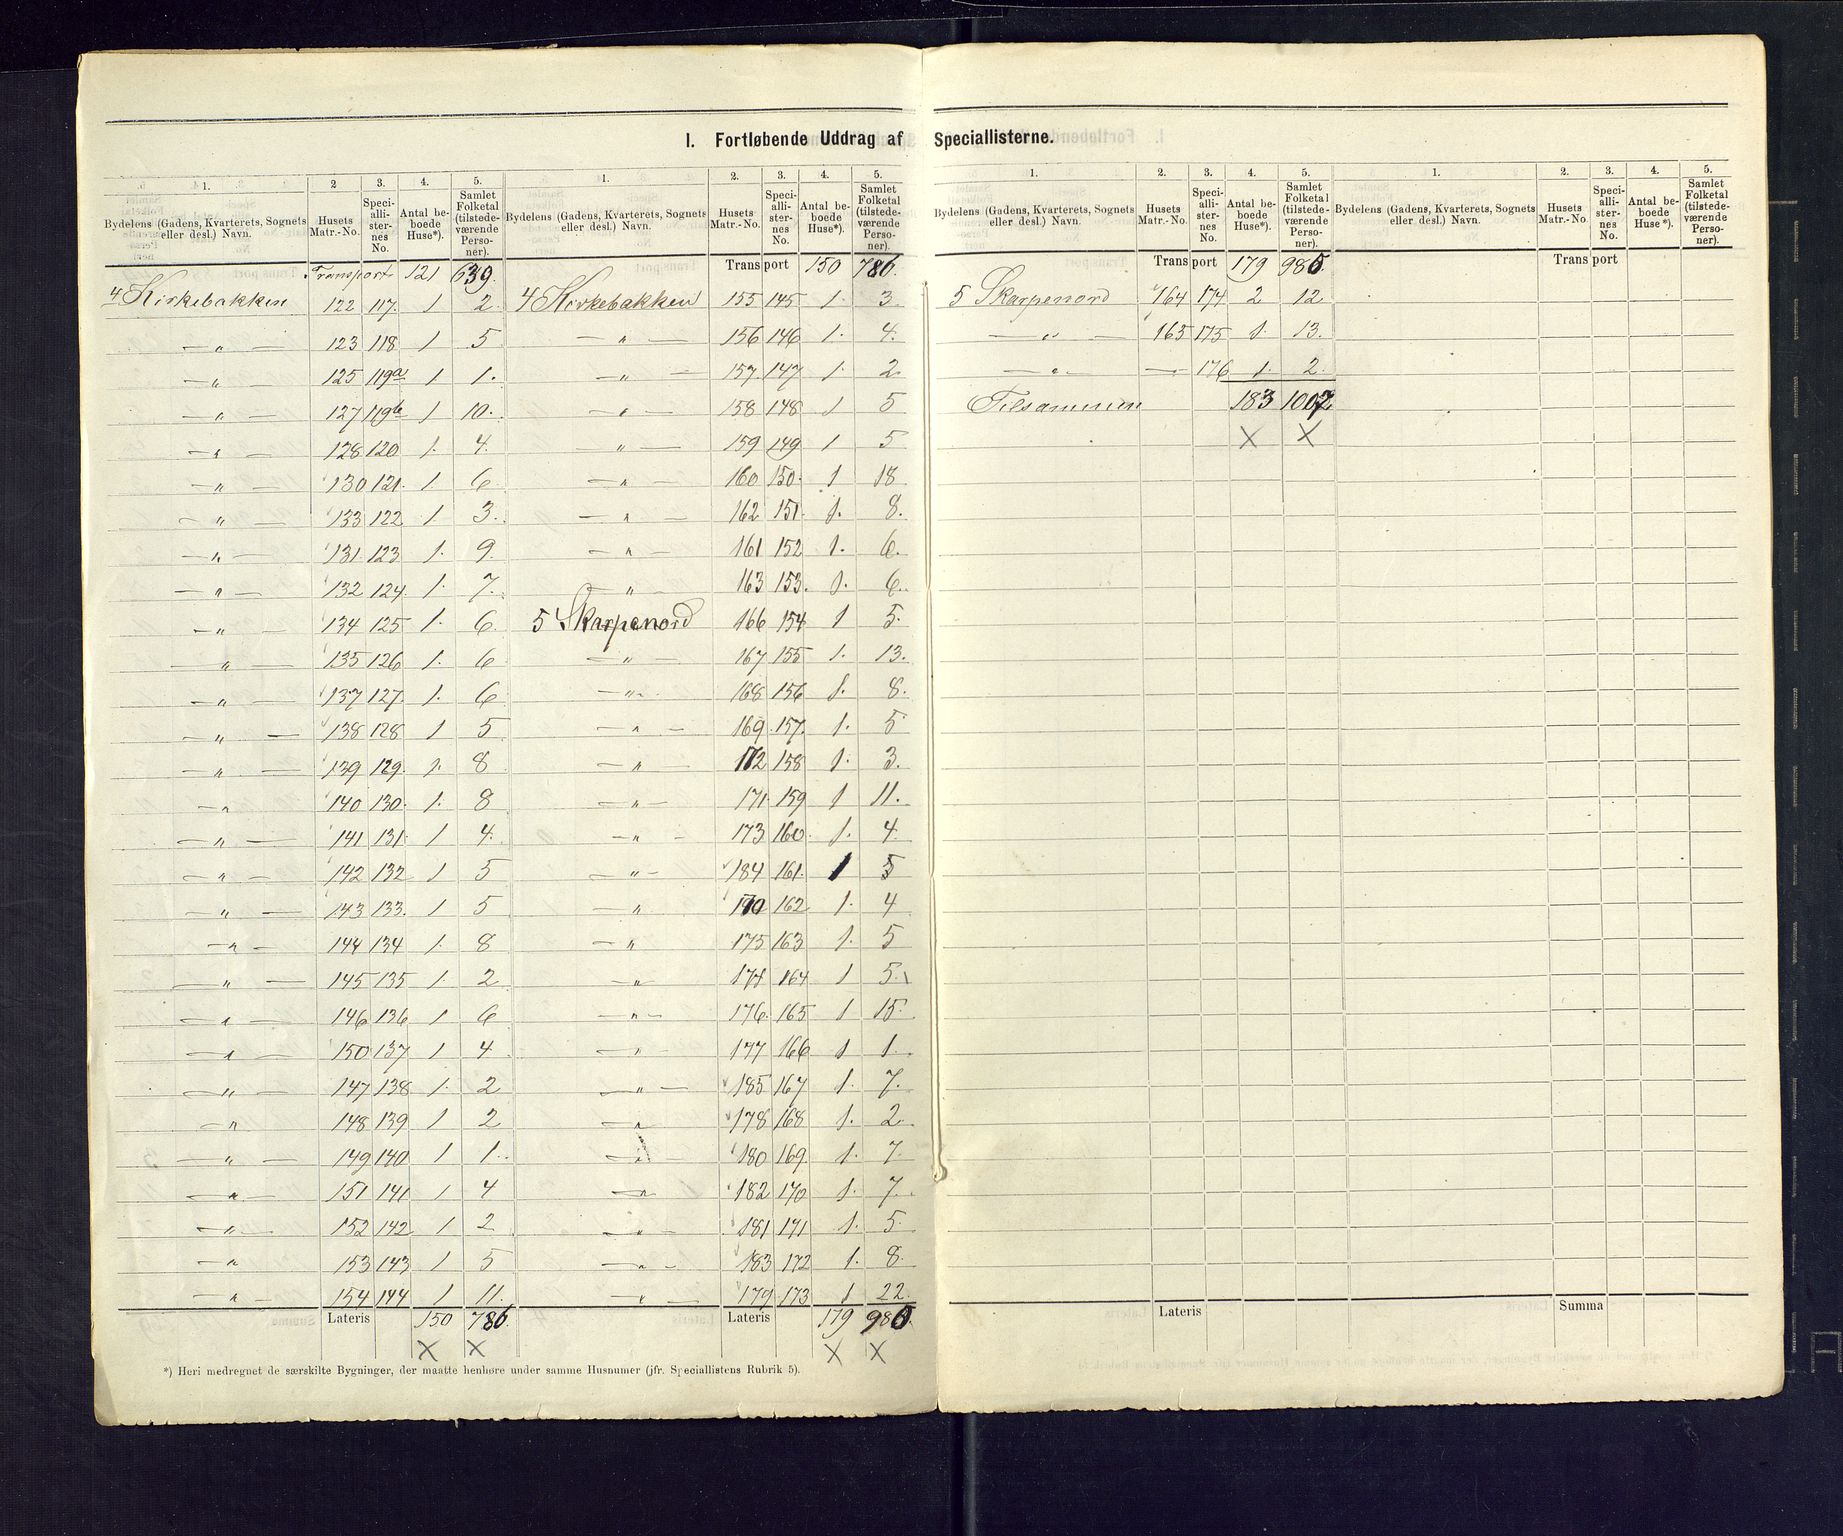 I. Fortløbende Uddrag af Speciallisterne.
1. 2 3. 4. 5. 1. 2. 3. 4. 5.
Bydelens (Gadens, Kvarterets, Sognets eller desl.) Navn. Husets Matr.-No. Speciallisternes No. Antal beboede Huse*). Samlet Folketal (tilstedeværende Personer). Bydelens (Gadens, Kvarterets, Sognets eller desl.) Navn. Husets Matr.-No. Speciallisternes No. Antal beboede Huse*). Samlet Folketal (tilstedeværende Personer).
Transport 121 639. Transport 150 786
4 Kirkebakken 122 117. 1 2 4 Kirkebakken 155 145 1. 3
— „ — 123 118 1 5 — „ — 156 146 1. 4.
— „ — 125 119a 1 1. — „ — 157 147 1. 2
— „ — 127 119b 1 10. — „ — 158 148 1 5
— „ — 128 120 1. 4. — „ — 159 149 1 5
— „ — 130 121. 1. 6 — „ — 160 150. 1 18
— „ — 133 122 1. 3. — „ — 162 151. 1. 8.
— „ — 131. 123 1. 9 — „ — 161 152 1. 6.
— „ — 132 124. 1. 7. „ — 163 153. 1. 6.
— „ — 134 125 1. 6. 5 Skarpenord 166 154 1 5.
— „ — 135 126 1. 6 — „ — 167 155 1. 13.
— „ — 137 127. 1. 6 — „ — 168 156 1. 8.
— „ — 138 128 1 5 — „ — 169. 157. 1. 5
— „ — 139 129. 1. 8 — „ — 172 158 1. 3.
— „ 140 130. 1. 8 — „ — 171. 159 1 11.
— „ — 141 131. 1 4. — „ — 173 160. 1. 4
— „ — 142 132 1 5 — „ — 184 161. 1 5
— „ — 143 133. 1 5 — „ 170 162 1. 4
— „ — 144 134 1. 8 — „ 175 163 1. 5
— „ — 145 135 1. 2 — „ 174 164 1 5.
— „ — 146 136 1 6 — „ — 176. 165 1 15.
— „ — 150 137 1 4. — „ 177 166 1 1.
— „ — 147 138 1. 2 — „ — 185 167 1. 7.
— „ 148 139 1 2 — „ 178 168 1. 2.
— „ — 149 140 1 1. — „ — 180 169. 1. 7.
— „ — 151 141 1 4 — „ 182 170 1. 7.
— „ — 152 142 1 2 — „ — 181 171 1. 5.
— „ 153 143 1 5 — „ — 183 172 1. 8.
— „ — 154 144 1 11. — „ — 179. 173 1 22.
Lateris 150 786. Lateris 179 985.
X X X X
*) Heri medregnet de særskilte Bygninger, der maatte henhøre under samme Husnumer (jfr. Speciallistens Rubrik 5).
1. 2. 3. 4. 5. 1. 2. 3. 4. 5.
Bydelens (Gadens, Kvarterets, Sognets eller desl.) Navn. Husets Matr.-No. Speciallisternes No. Antal beboede Huse*). Samlet Folketal (tilstedeværende Personer). Bydelens (Gadens, Kvarterets, Sognets eller desl.) Navn. Husets Matr.-No. Speciallisternes No. Antal beboede Huse*). Samlet Folketal (tilstedeværende Personer).
Transport 179 985. Transport
5 Skarpenord 164 174 2 12
— „ — 165 175 1. 13.
— „ — — 176 1. 2.
Tilsammen 183 1002.
X X
Lateris Summa